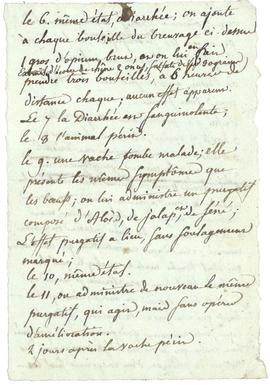 le 6. même état, diarrhée; on ajoute
à chaque bouteille du breuvage ci dessus
1 gros d'opium brut, on lui en fait
prendre trois bouteilles, à 6 heures de
distance chaque; aucun effet apparent.
Le 7 la Diarrhée est sanguinolente;
le 8 l'animal périt.
le 9. une vache tombe malade; elle
présente les même symptôme que
les bœufs; on lui administre un purgatif
composé d'Aloës, de jalap, et de séné;
L'effet purgatif a lieu, sans soulagement
marqué;
le 10, même état.
le 11, on administre de nouveau le même
purgatif, qui agit, mais sans opérer
d'amélioration.
2 jours après la vache périt.